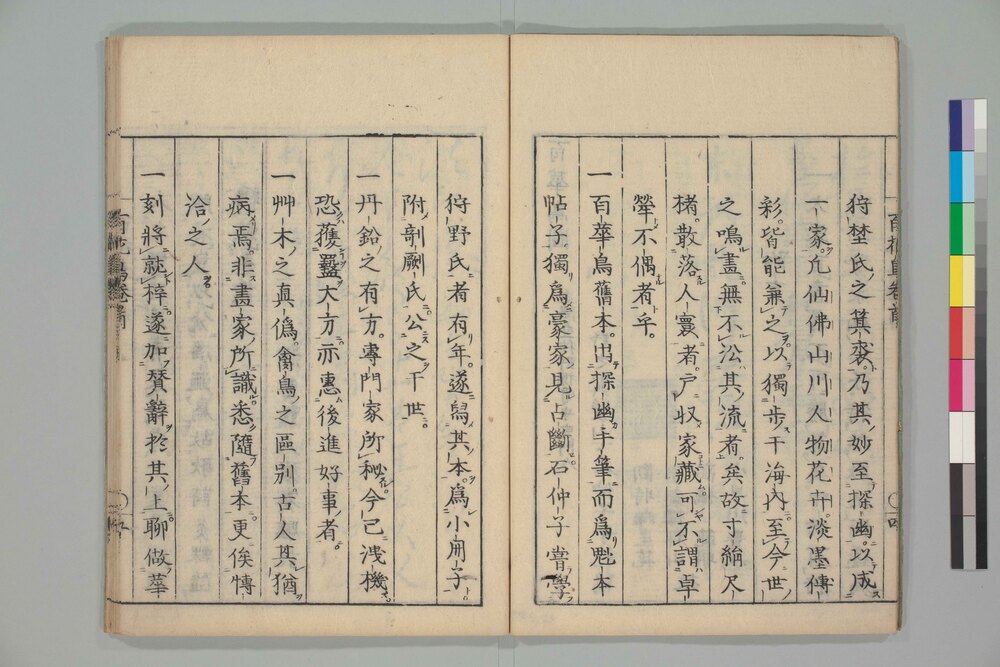 狩埜氏之箕裘乃其妙至探幽以成
一家凢仙佛山川人物花卉淡墨傳
彩皆能兼之以獨步于海內至今世
之鳴畫無不㳂其流者矣故寸縑尺
楮散落人寰者戶収家藏可不謂卓
犖不偶者乎
一百華鳥舊本出探幽手筆而為𩲃本
帖子獨為豪家見占斷石仲子嘗學
狩野氏者有年遂舄其本為小冊子
附剞劂氏公之于世
一丹鉛之有方専門家所秘今已洩機
恐蒦蠿大方示惠後進好事者
一艸木之真偽禽鳥之區别古人其猶
病焉非畫家所識悉隨舊本更俟慱
洽之人
一刻將就梓遂加賛辭於其上聊做華